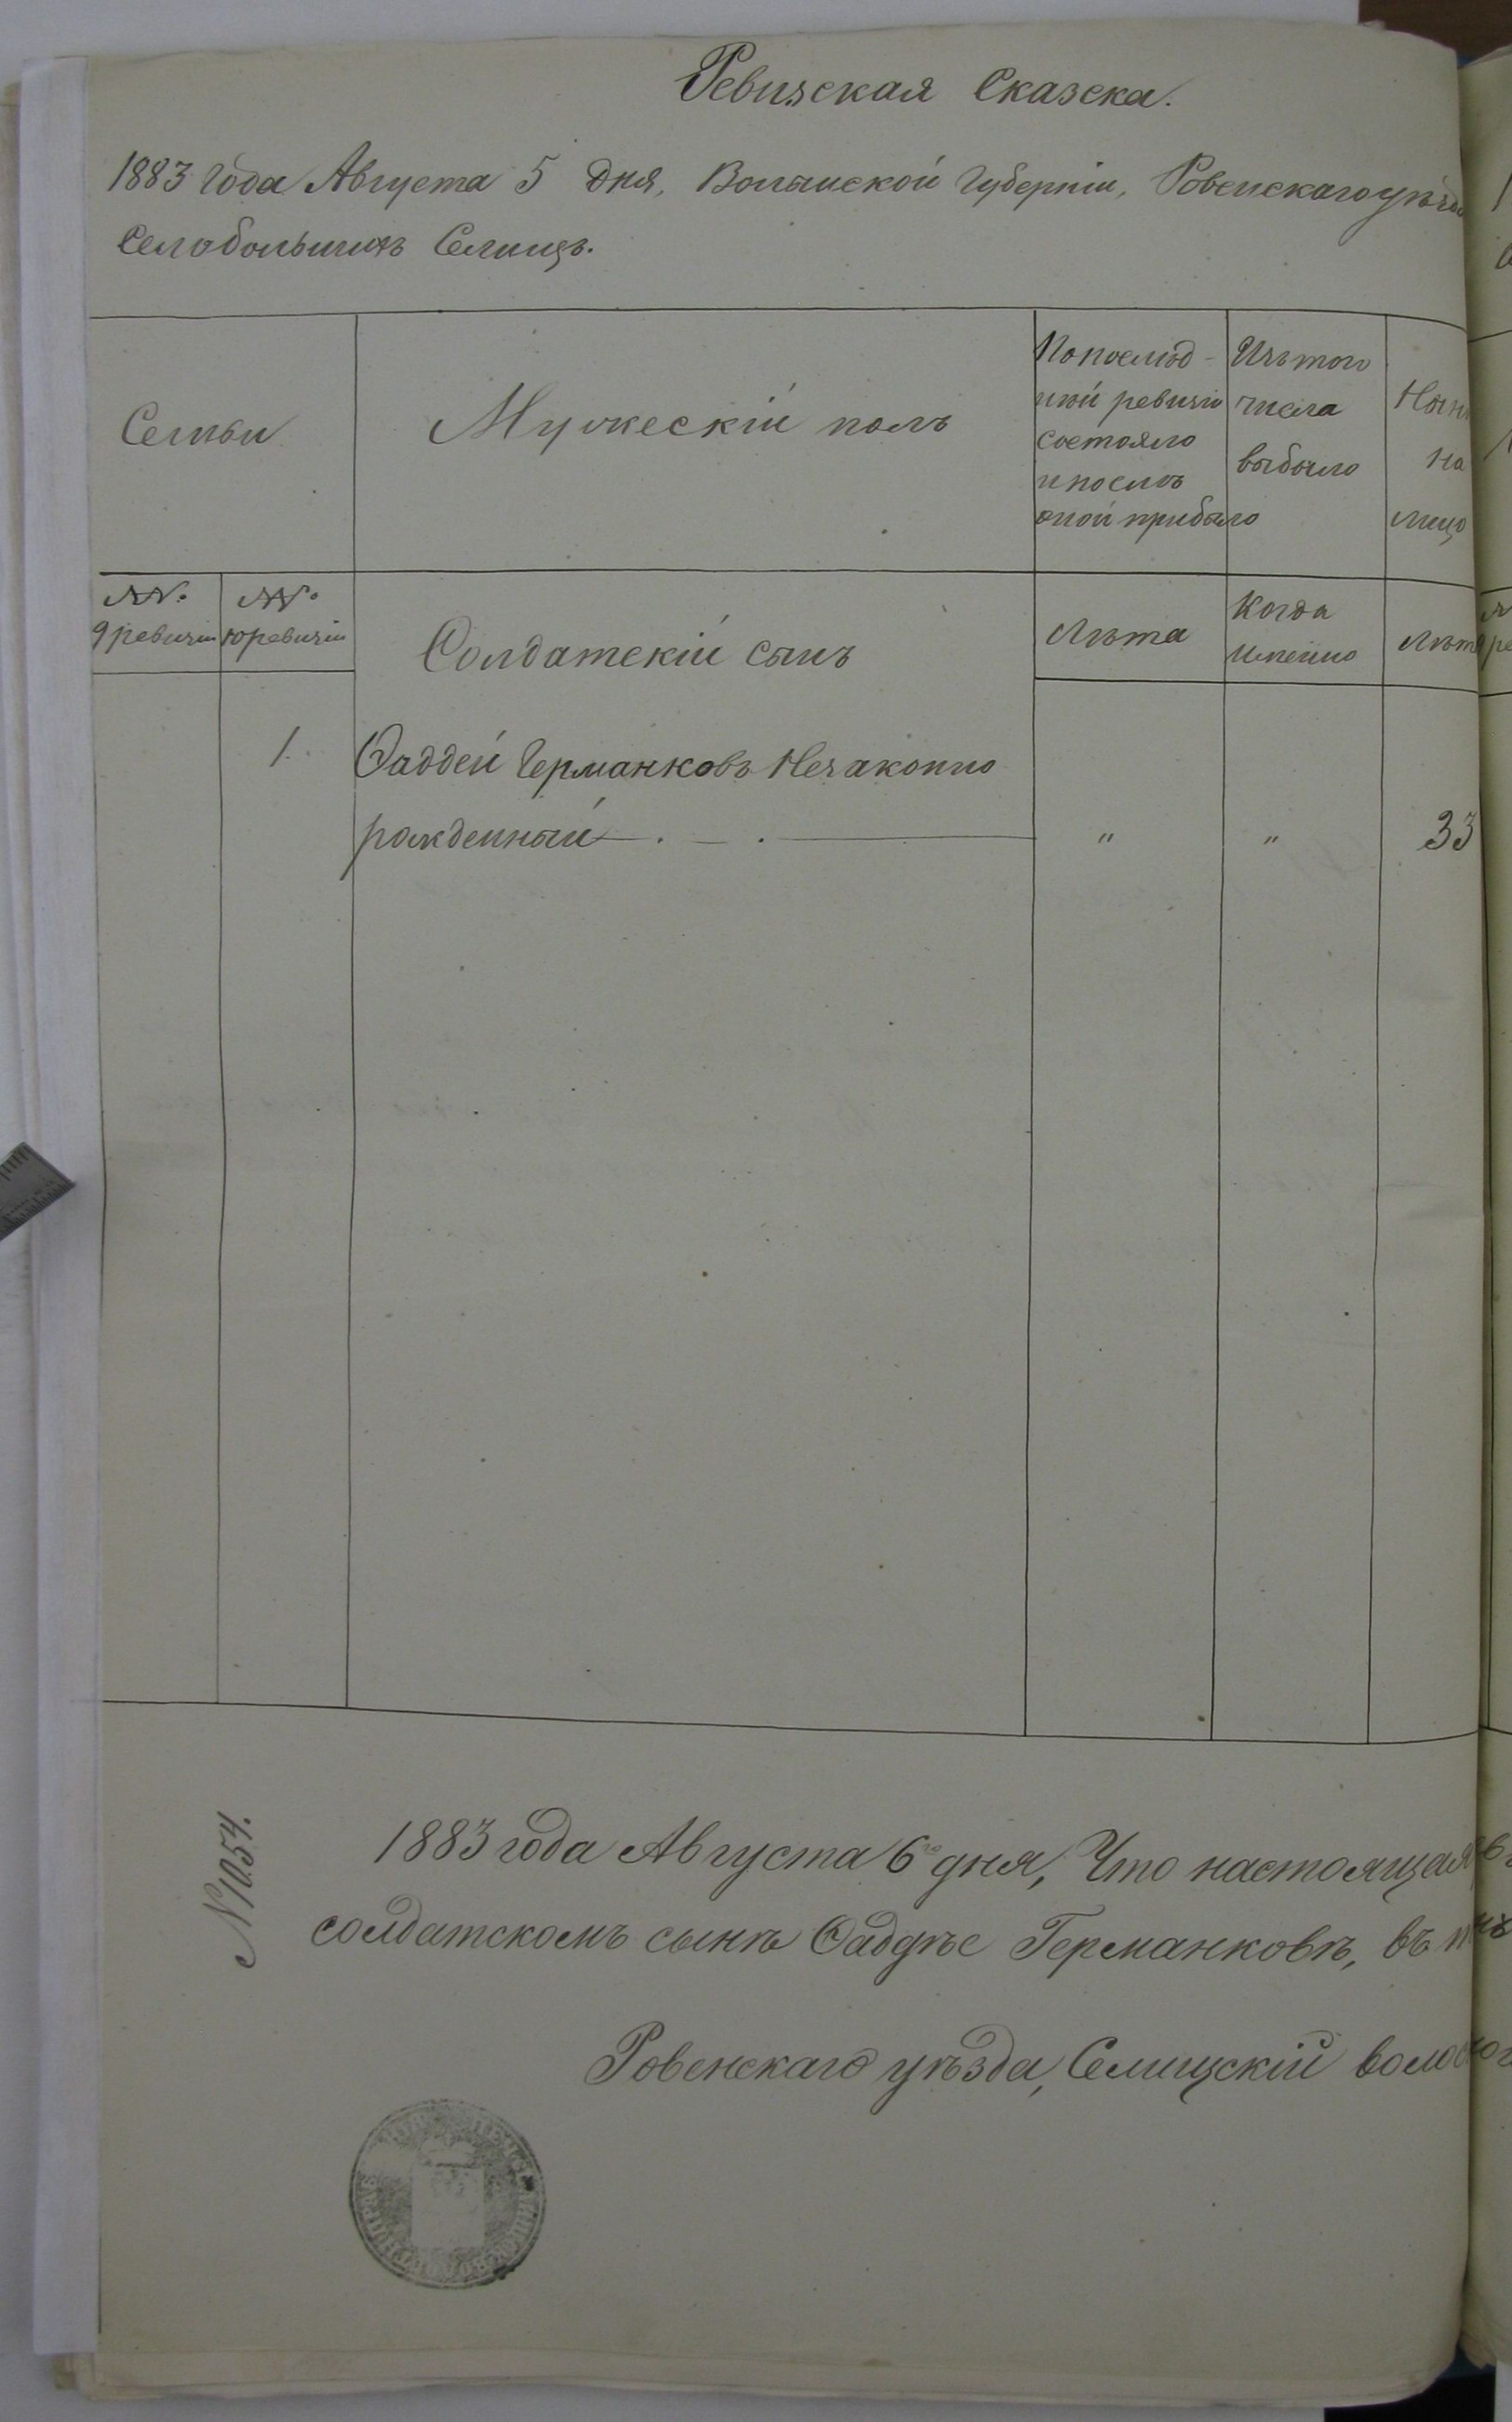 Ревизская Сказка.
1883 Года Августа 5 Дня, Волынской Губерніи, Ровенскаго уѣзда
Село большихъ Селищъ.
Семьи
Мужескій полъ
По послѣд-
ней ревизіи
состояло
и послѣ
оной прибыло
Изъ того
числа
выбыло
Нын
на
лицо
№№.
9 ревизіи
№№.
10 ревизіи
Солдатскій сынъ
Лѣта
Когда
именно
Лѣт
1. Ѳаддей Германковъ Незаконно
рожденный — . — . — " " 33
№ 1054.
1883 года Августа 6го дня, Что настоящая
солдатскомъ сынѣ Ѳаддѣе Германковѣ, въ
Ровенскаго уѣзда, Селищскій воло